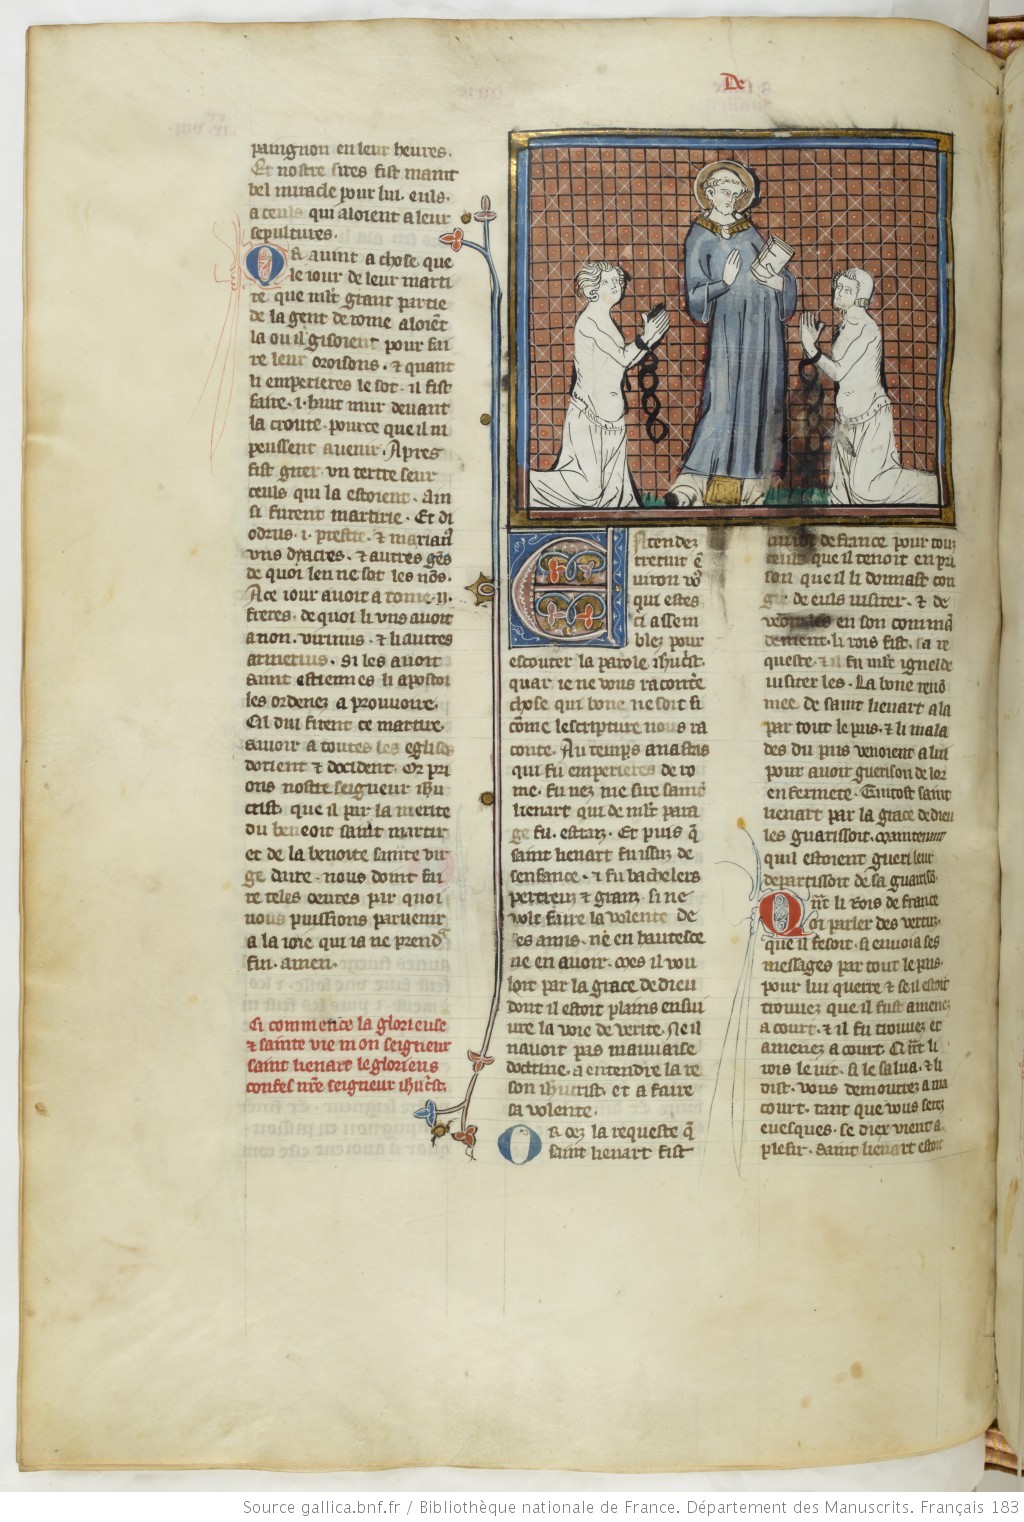 De
paingnon en leur heures.
Et nostre sires fist maint
bel miracle pour lui. euls.
a ceuls qui aloient a leur
sepultures.
OR auint a chose que
le iour de leur marti
re que mlt grant partie
de la gent de rome aloiẽt
la ou il gisoient pour fai
re leur oroisons. ⁊ quant
li emperieres le sot. il fist
faire .i. haut mur deuant
la croute. pource que il ni
peussent auenir. Apres
fist giter vn tertre seur
ceuls qui la estoient. Ain
si furent martirie. Et di
odrus .i. prestre. ⁊ marian9
vns dyacres. ⁊ autres gẽs
de quoi len ne sot les nõs.
A ce iour auoit a rome .ij.
freres. de quoi li vns auoit
a non. virinus. ⁊ li autres
armetius. si les auoit
saint estiennes li apostoi
les ordenez a prouuoire.
Cil dui firent ce martire.
sauoir a toutes les eglises
dorient ⁊ docident. Or pri
ons nostre seigneur ihũ
crist. que il par la merite
du benoeit saint martir
et de la benoite sainte vir
ge daire. nous doint fai
re teles oeures par quoi
nous puissions paruenir
a la ioie qui ia ne prendra
fin. amen.
Ci commence la glorieuse
⁊ sainte vie mon seigneur
saint lienart le glorieus
confes nr̃e seigneur ihũcst.
Entendez
tretuit ẽ
uiron vo9
qui estes
ci assem
blez pour
escouter la parole ihũcst.
quar ie ne vous raconte
chose qui bone ne soit si
cõme lescripture nous ra
conte. Au temps anastais
qui fu emperieres de ro
me. fu nez me sire saint
lienart qui de mlt para
ge fu. estraiz. Et puis q̃
saint lienart fu issuz de
senfance. ⁊ fu bachelers
percreuz ⁊ granz. si ne
volt faire la volente de
ses amis. ne en hautesce
ne en auoir. Mes il vou
loit par la grace de dieu
dont il estoit plains ensui
ure la voie de verite. Ne il
nauoit pas mauuaise
doctrine. a entendre la re
son ihũcrist. et a faire
sa volente.
OR oez la requeste q̃
saint lienart fist
au roi de france pour touz
ceuls que il tenoit en pri
son que il li donnast con
gie de euls uisiter. ⁊ de
en son commã
dement. li rois fist. sa re
queste. ⁊ il fu mlt ignel de
uisiter les. La bone renõ
mee de saint lienart ala
par tout le pais. ⁊ li mala
des du pais venoient a lui
pour auoir guerison de lor
enfermete. Tantost saint
lienart par la grace de dieu
les guarissoit. Maintenant
quil estoient gueri leur
departissoit de sa guarisõ.
Qñt li rois de france
oi parler des vertuz.
que il fesoit. si enuoia ses
messages par tout le pais.
pour lui querre ⁊ se il estoit
trouuez que il fust amene
a court. ⁊ il fu trouuez et
amenez a court. Qñt li
rois le uit. si le salua. ⁊ li
dist. vous demourrez a ma
court. tant que vous serez
euesques. se diex vient a
plesir. Saint lienart estoit
Source gallica.bnf.fr / Bibliothèque nationale de France. Département des Manuscrits. Français 183